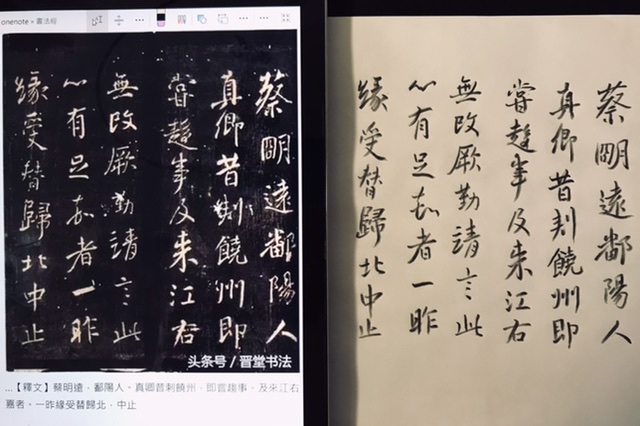 onenote »
蔡明遠鄱陽人
真卿昔刾饒州即
嘗趍事及来江右
無改厥勤靖言此
心有足嘉者一昨
緣受替歸北中止
头条号 / 晋堂书法
...【釋文】蔡明遠，鄱陽人。真卿昔刺饒州，即官趨事，及來江右
嘉者。一昨緣受替歸北，中止
蔡明遠鄱陽人
真卿昔刾饒州即
嘗趍事及来江右
無改厥勤靖言此
心有足嘉者一昨
緣受替歸北中止